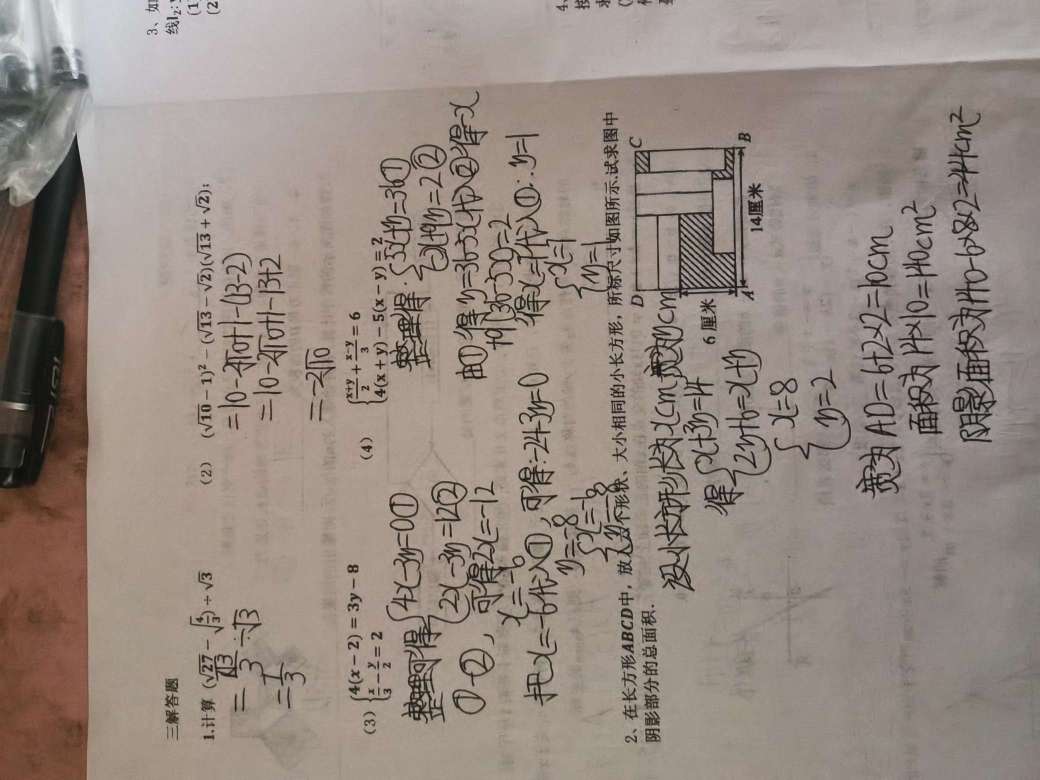 三解答题
1.计算 (√27 - √(4/3)) ÷ √3
= √3/3 ÷ √3
= 1/3
(2) (√10 - 1)² - (√13 - √2)(√13 + √2);
= 10 - 2√10 + 1 - (13 - 2)
= 10 - 2√10 + 1 - 13 + 2
= -2√10
(3) {4(x - 2) = 3y - 8
x/3 - y/2 = 2
整理可得 {4x - 3y = 0①
2x - 3y = 12②
① - ②, 可得2x = -12
x = -6
把x = -6代入①, 可得: -24 - 3y = 0
y = -8
{x = -6
y = -8
(4) {(x+y)/2 + (x-y)/3 = 6
4(x + y) - 5(x - y) = 2
整理得: {5x + y = 36①
-x + 9y = 2②
由①得y = 36 - 5x代入②得-x
+9(36 - 5x) = 2
得x = 7代入①∴y = 1
{x = 7
y = 1
2、在长方形ABCD中，放入六个形状、大小相同的小长方形，所标尺寸如图所示.试求图中
阴影部分的总面积.
D
C
A
B
6厘米
14厘米
设小长方形长为xcm, 宽为ycm
得 {x + 3y = 14
2y + 6 = x + y
{x = 8
y = 2
宽为AD = 6 + 2×2 = 10cm
面积为14×10 = 140cm²
阴影面积为140 - 6×8×2 = 44cm²
3、如
线l₂:y
(1)
(2)
4、
按
求